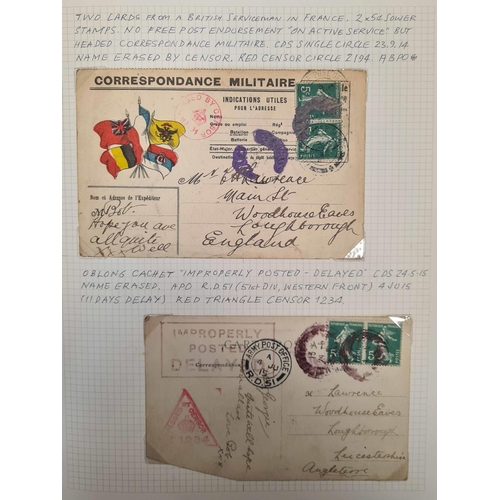 TWO CARDS FROM A BRITISH SERVICEMAN IN FRANCE. 2X5c SOWER
STAMPS. NO FREE POST ENDORSEMENT "ON ACTIVE SERVICE" BUT
HEADED CORRESPONDANCE MILITAIRE. CDS SINGLE CIRCLE 23.9.14
NAME ERASED BY CENSOR. RED CENSOR CIRCLE 2194. ABPO*
CORRESPONDANCE MILITAIRE
INDICATIONS UTILES
POUR L'ADRESSE
Grade ou emploi
Bataillon Compagnie
Batterie
Destination
Mrs Lawrence
Main St
Woodhouse Eaves
Loughborough
England
Nom et Adresse de l'Expéditeur
Bob.
Hope you are
all quite
Well
OBLONG CACHET "IMPROPERLY POSTED - DELAYED" CDS 24.5.15
NAME ERASED. APO R.D.51 (51st DIV, WESTERN FRONT) 4 JU 15
(11 DAYS DELAY) RED TRIANGLE CENSOR 1234.
IMPROPERLY
POSTED
DELAY
ARMY POST OFFICE
JU
15
R.D.51
1234
Georgie
quite well hope
Love Bob
xxx
Lawrence
Woodhouse Eaves
Loughborough
Leicestershire
Angleterre